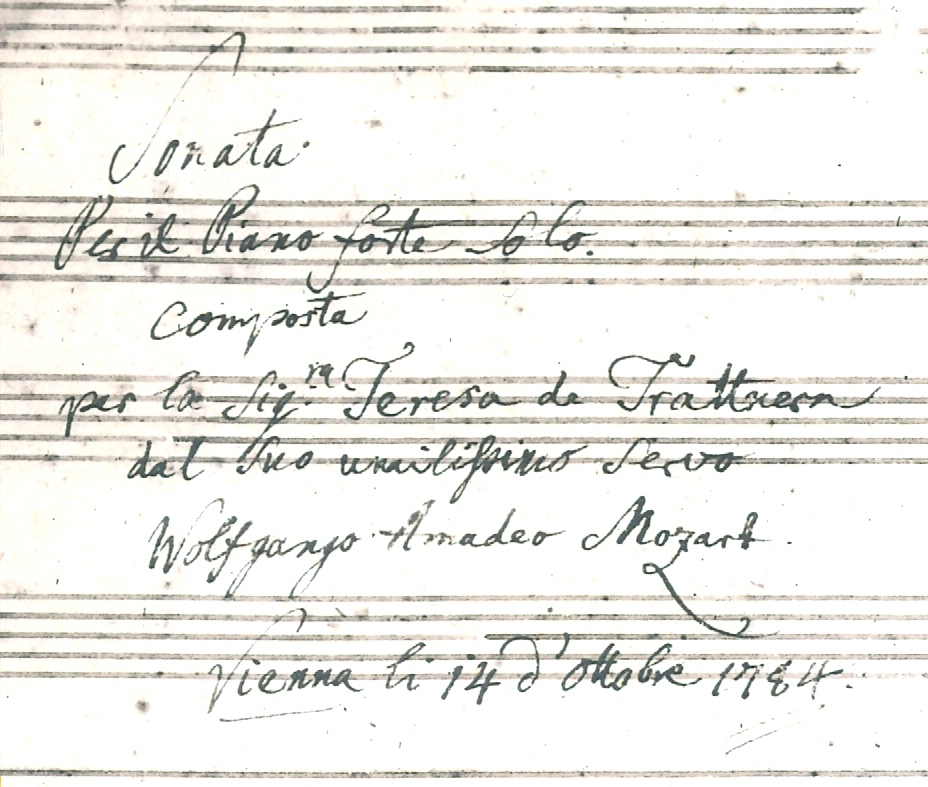 Sonata.
Per il Piano forte solo.
composta
per la Sig.ra Teresa de Trattnern
dal suo umilissimo servo
Wolfgango Amadeo Mozart.
Vienna li 14 d'ottobre 1784.